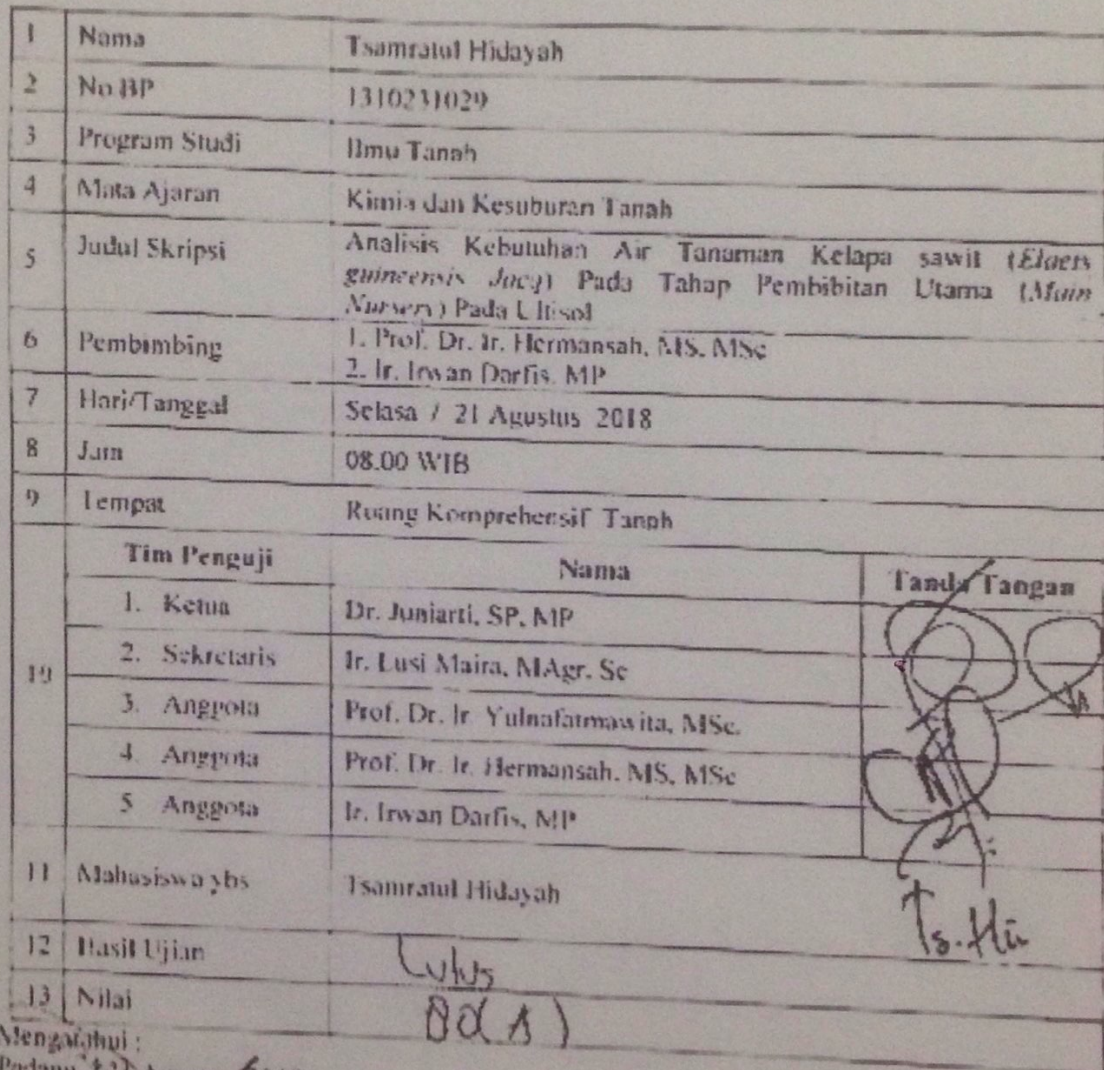 1 Nama Tsamratul Hidayah
2 No BP 1310231029
3 Program Studi Ilmu Tanah
4 Mata Ajaran Kimia dan Kesuburan Tanah
5 Judul Skripsi Analisis Kebutuhan Air Tanaman Kelapa sawit (Elaeis
guineensis Jacq) Pada Tahap Pembibitan Utama (Main
Nursery) Pada Ultisol
6 Pembimbing 1. Prof. Dr. Ir. Hermansah, MS, MSc
2. Ir. Irwan Darfis, MP
7 Hari/Tanggal Selasa / 21 Agustus 2018
8 Jam 08.00 WIB
9 Tempat Ruang Komprehensif Tanah
10 Tim Penguji Nama Tanda Tangan
1. Ketua Dr. Juniarti, SP, MP
2. Sekretaris Ir. Lusi Maira, MAgr. Sc
3. Anggota Prof. Dr. Ir. Yulnafatmawita, MSc.
4. Anggota Prof. Dr. Ir. Hermansah, MS, MSc
5 Anggota Ir. Irwan Darfis, MP
11 Mahasiswa ybs Tsamratul Hidayah Ts. Hi
12 Hasil Ujian Lulus
13 Nilai 80 (A)
Mengatahui :
Padang